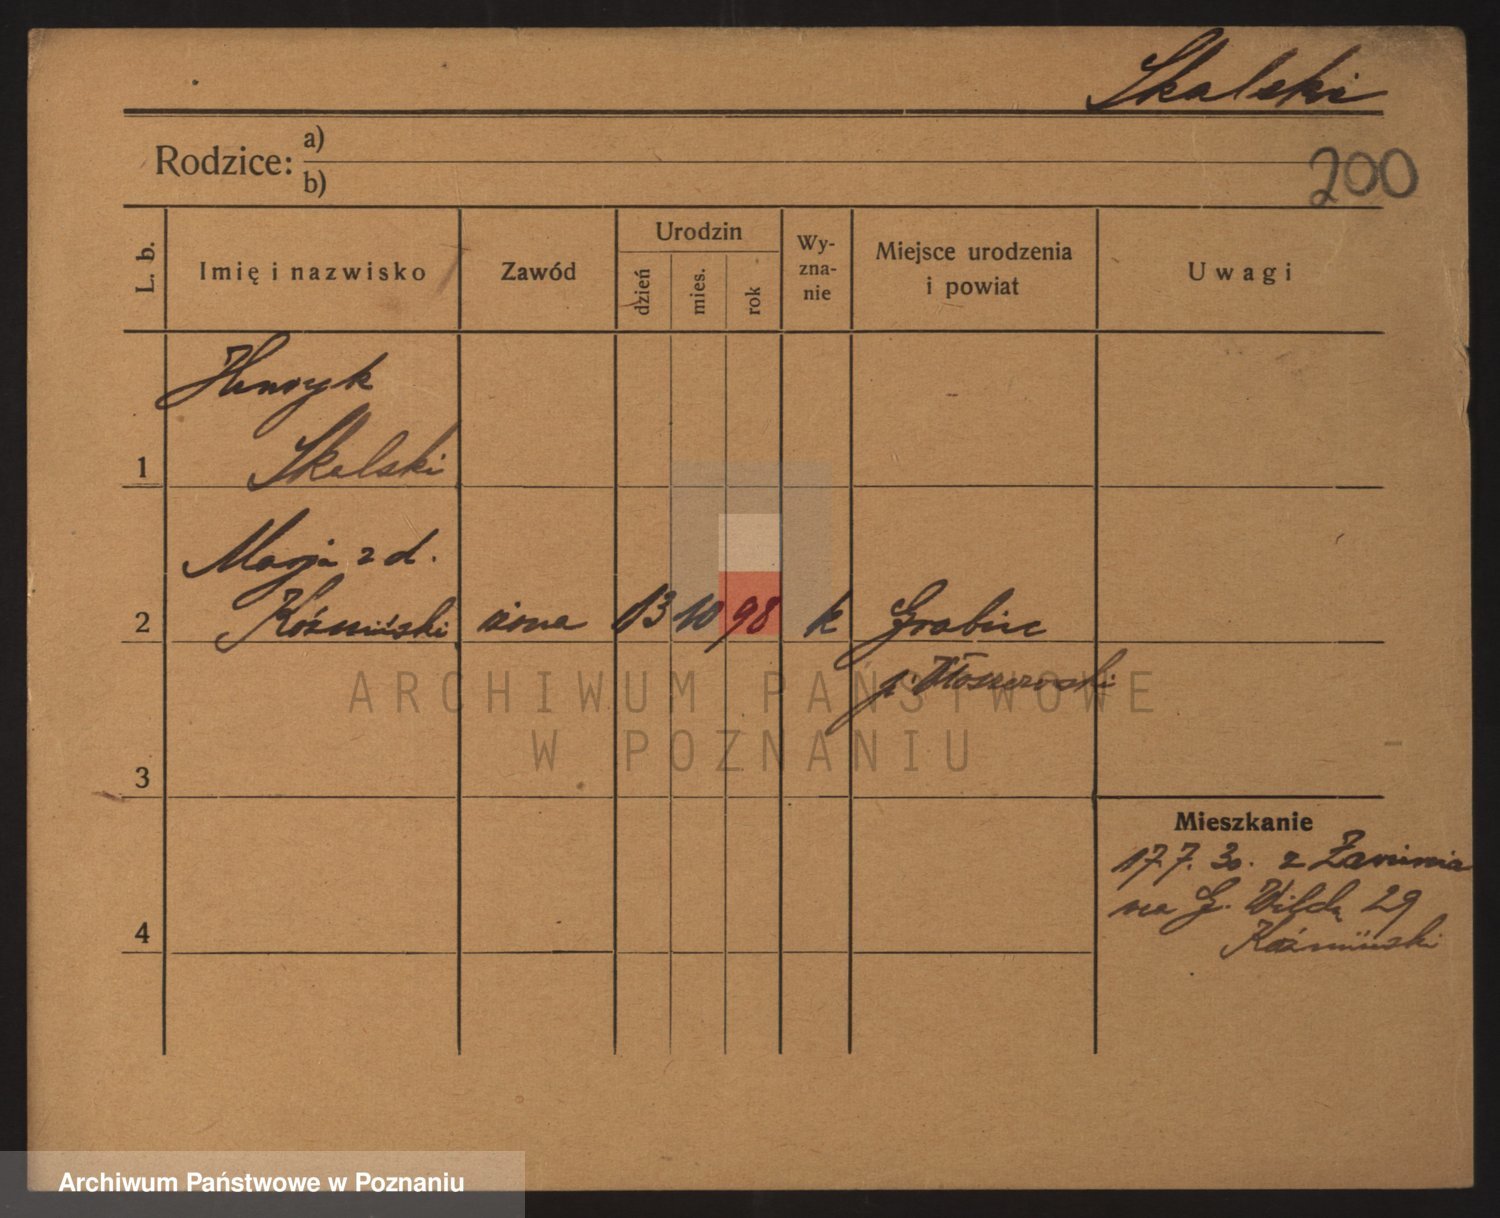 Skalski
Rodzice: a)
b)
200
L. b.
Imię i nazwisko
Zawód
Urodzin
dzień
mies.
rok
Wy-
zna-
nie
Miejsce urodzenia
i powiat
Uwagi
Henryk
1 Skalski
Marja z d.
2 Koźmiński żona 13 10 98 k Grabie
p.
3
4
Mieszkanie
17.7.30. z
na G. Wildę 29
Koźmiński
ARCHIWUM PAŃSTWOWE
W POZNANIU
Archiwum Państwowe w Poznaniu